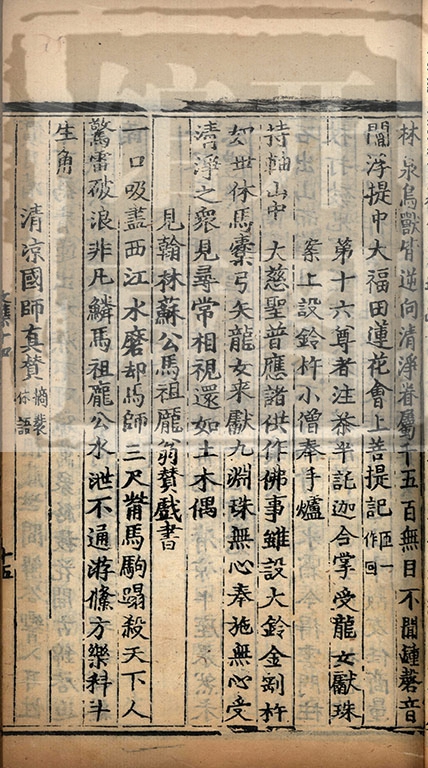 林泉鳥獸皆逆向清淨眷屬千五百無目不聞鍾磬音
閻浮提中大福田蓮花會上菩提記
匝一作回
第十六尊者注荼半託迦合掌受龍女獻珠
案上設鈴杵小僧奉手爐
持軸山中大慈聖普應諸供作佛事雖設大鈴金剛杵
如世休馬櫜弓矢龍女來獻九淵珠無心奉施無心受
清淨之衆見尋常相視還如土木偶
見翰林蘇公馬祖龐翁贊戲書
一口吸盡西江水磨却馬師三尺觜馬駒蹋殺天下人
驚雷破浪非凡鱗馬祖龐公水泄不通游鯈方樂科斗
生角
清凉國師真贊
摘裝休語
十五